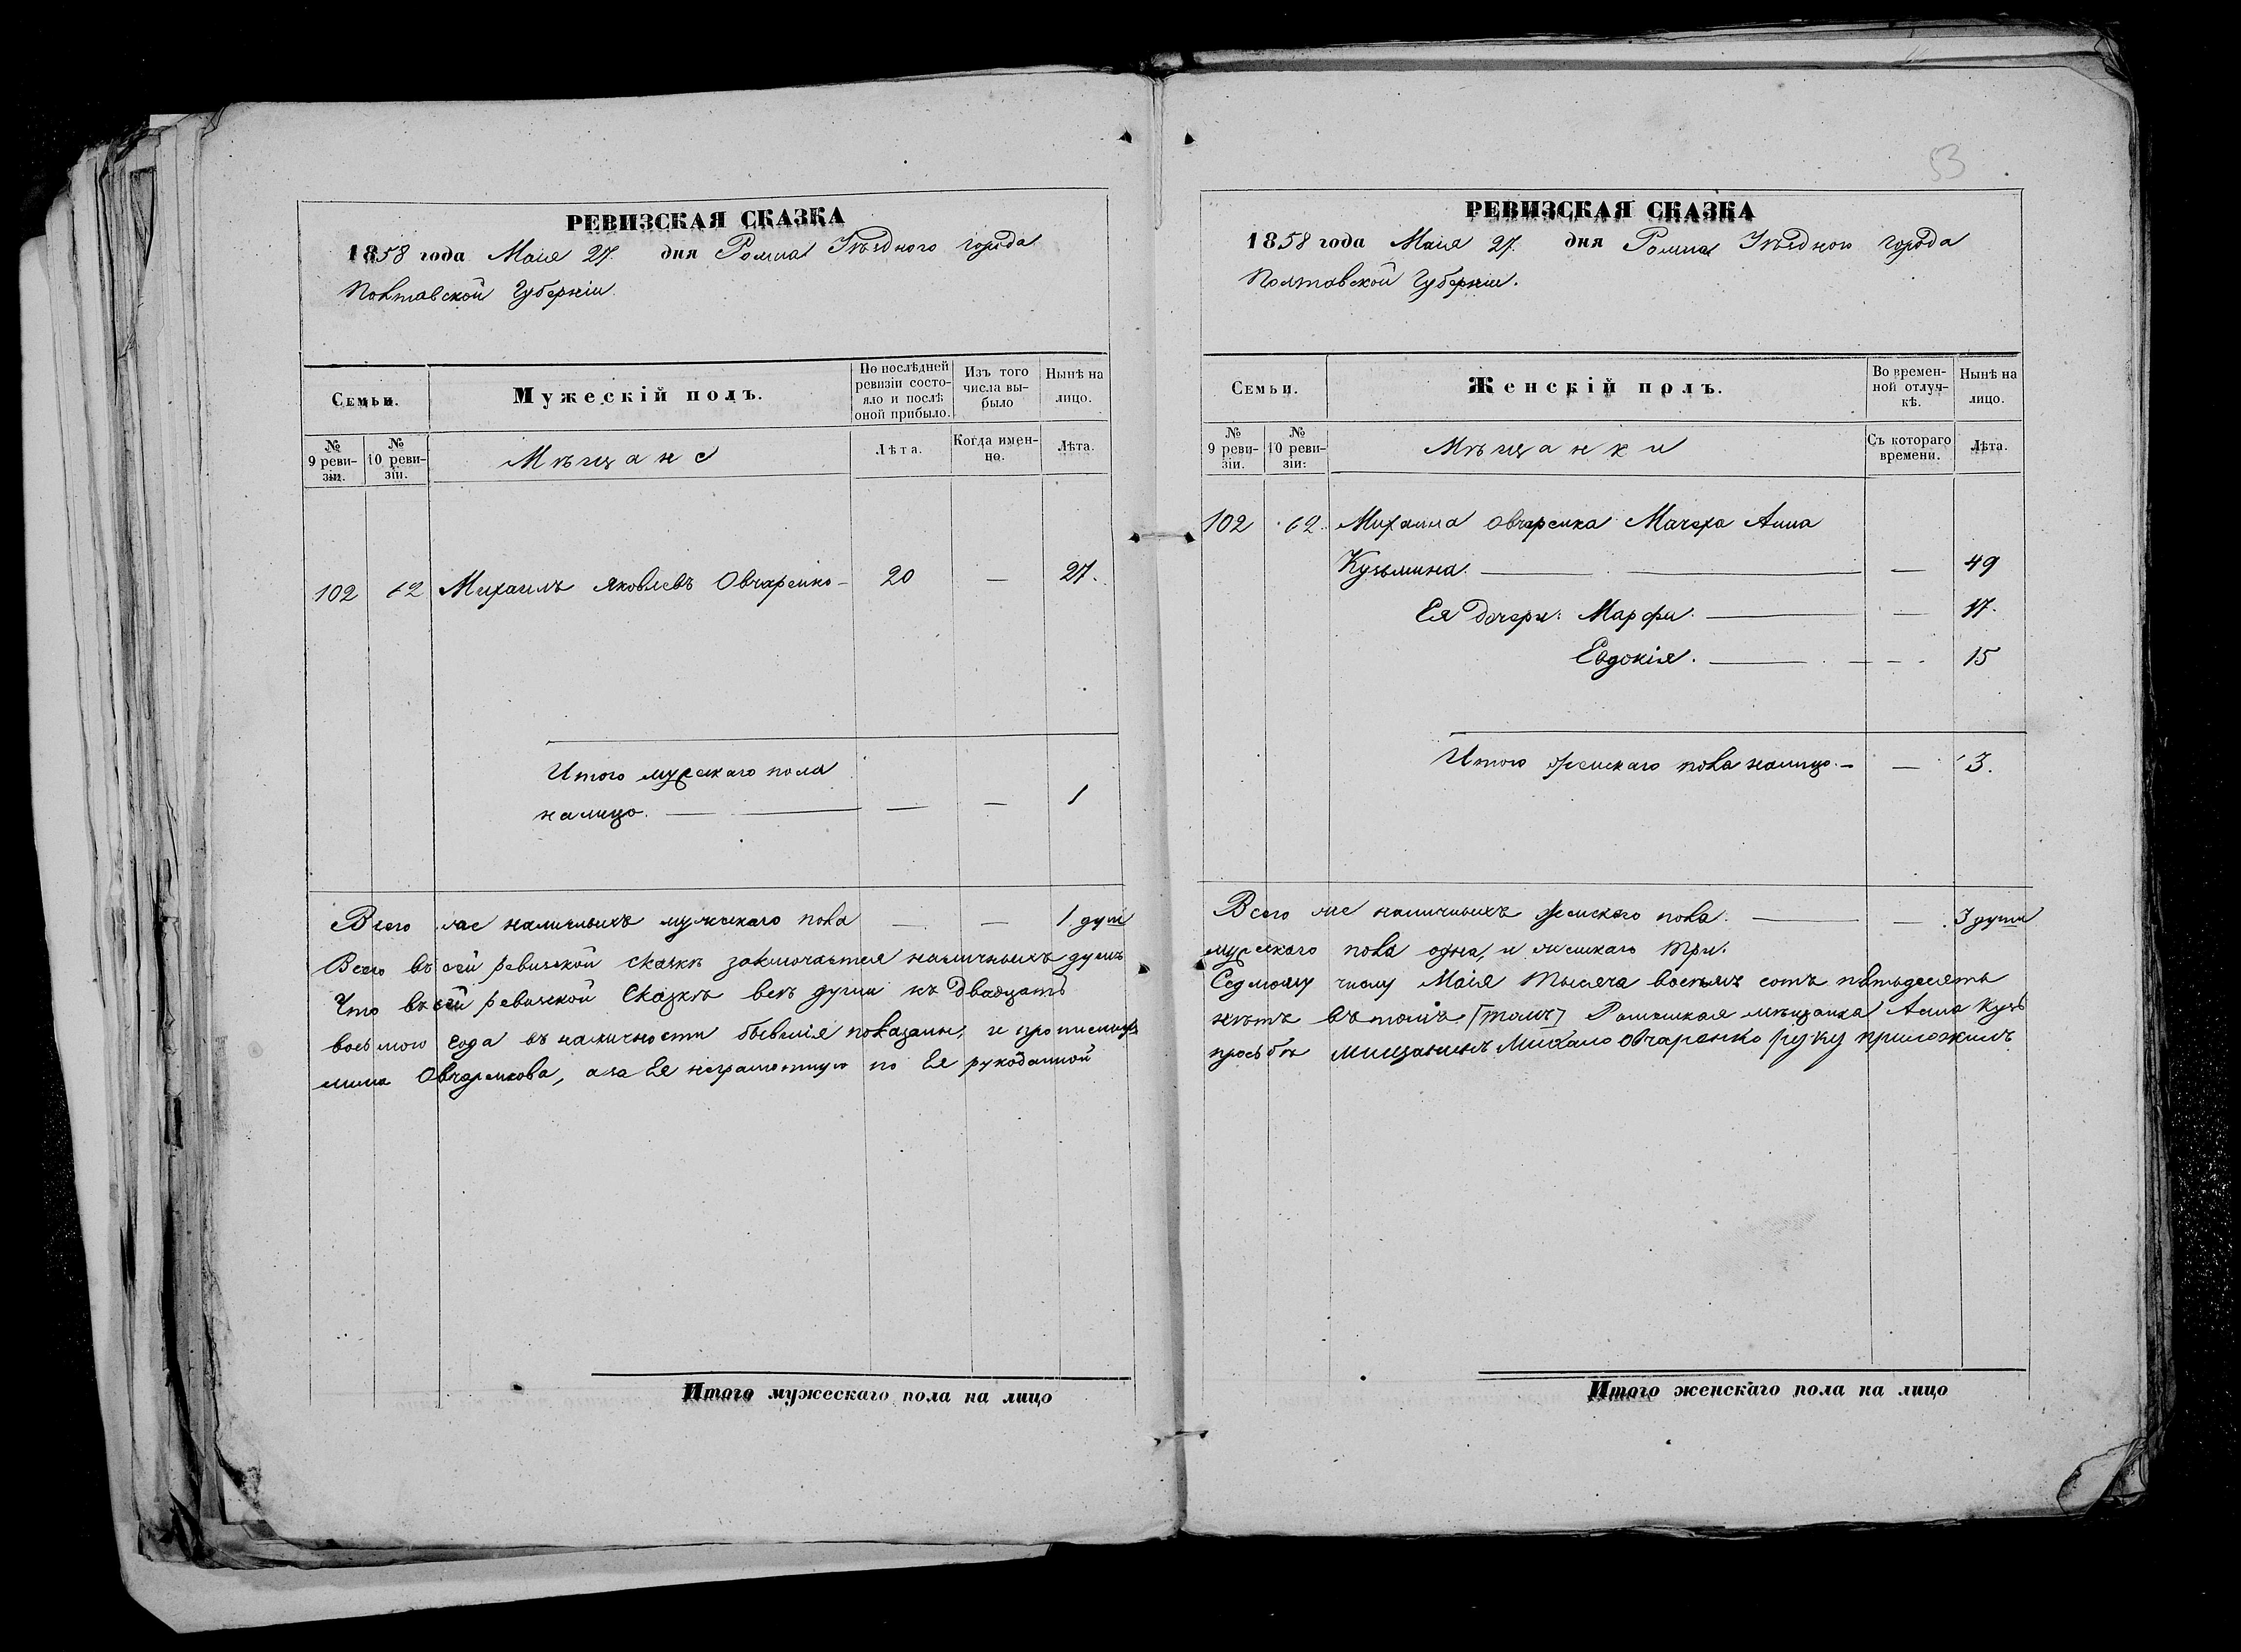 53
РЕВИЗСКАЯ СКАЗКА
1858 года Маія 27. дня Ромна Уѣзднаго города
Полтавской Губерніи.
Семьи.
Мужескій полъ.
По послѣдней ревизіи состо-
яло и послѣ
оной прибыло.
Изъ того
числа вы-
было
Нынѣ на
лицо.
№
9 реви-
зіи.
№
10 реви-
зіи.
Мѣщане
Лѣта.
Когда имен-
но.
Лѣта.
102 62 Михаилъ Яковлевъ Овчаренко — 20 — 27.
Итого мужескаго пола
налицо. — — — 1
Всего же наличныхъ мужескаго пола — — 1 душ
Всего въ сей ревизской сказкѣ заключается наличныхъ душъ
Что въ сей ревизской Сказкѣ всѣ души къ двадцать
восьмого года въ наличности бывшія показаны, и прописных
мина Овчаренкова, а за Ея неграмотную по Ея рукоданной
Итого мужескаго пола на лицо
РЕВИЗСКАЯ СКАЗКА
1858 года Маія 27. дня Ромна Уѣзднаго города
Полтавской Губерніи.
Семьи.
Женскій полъ.
Во времен-
ной отлуч-
кѣ.
Нынѣ на
лицо.
№
9 реви-
зіи.
№
10 реви-
зіи:
Мѣщанки
Съ котораго
времени.
Лѣта.
102 62. Михаила Овчаренка Мачеха Анна
Кузьмина. — — — 49
Ея дочери: Марфа. — — 17.
Евдокія. — — 15
Итого женскаго пола налицо. — — 3.
Всего же наличныхъ женскаго пола. — — 3 души
мужскаго пола одна, и женскаго три.
Седмому числу Маія тысяча восемь сотъ пятьдесятъ
нѣтъ въ томъ [томъ] Роменская мѣщанка Анна Кузь
прозьбѣ мищанинъ Михаило Овчаренко руку приложилъ
Итого женскаго пола на лицо